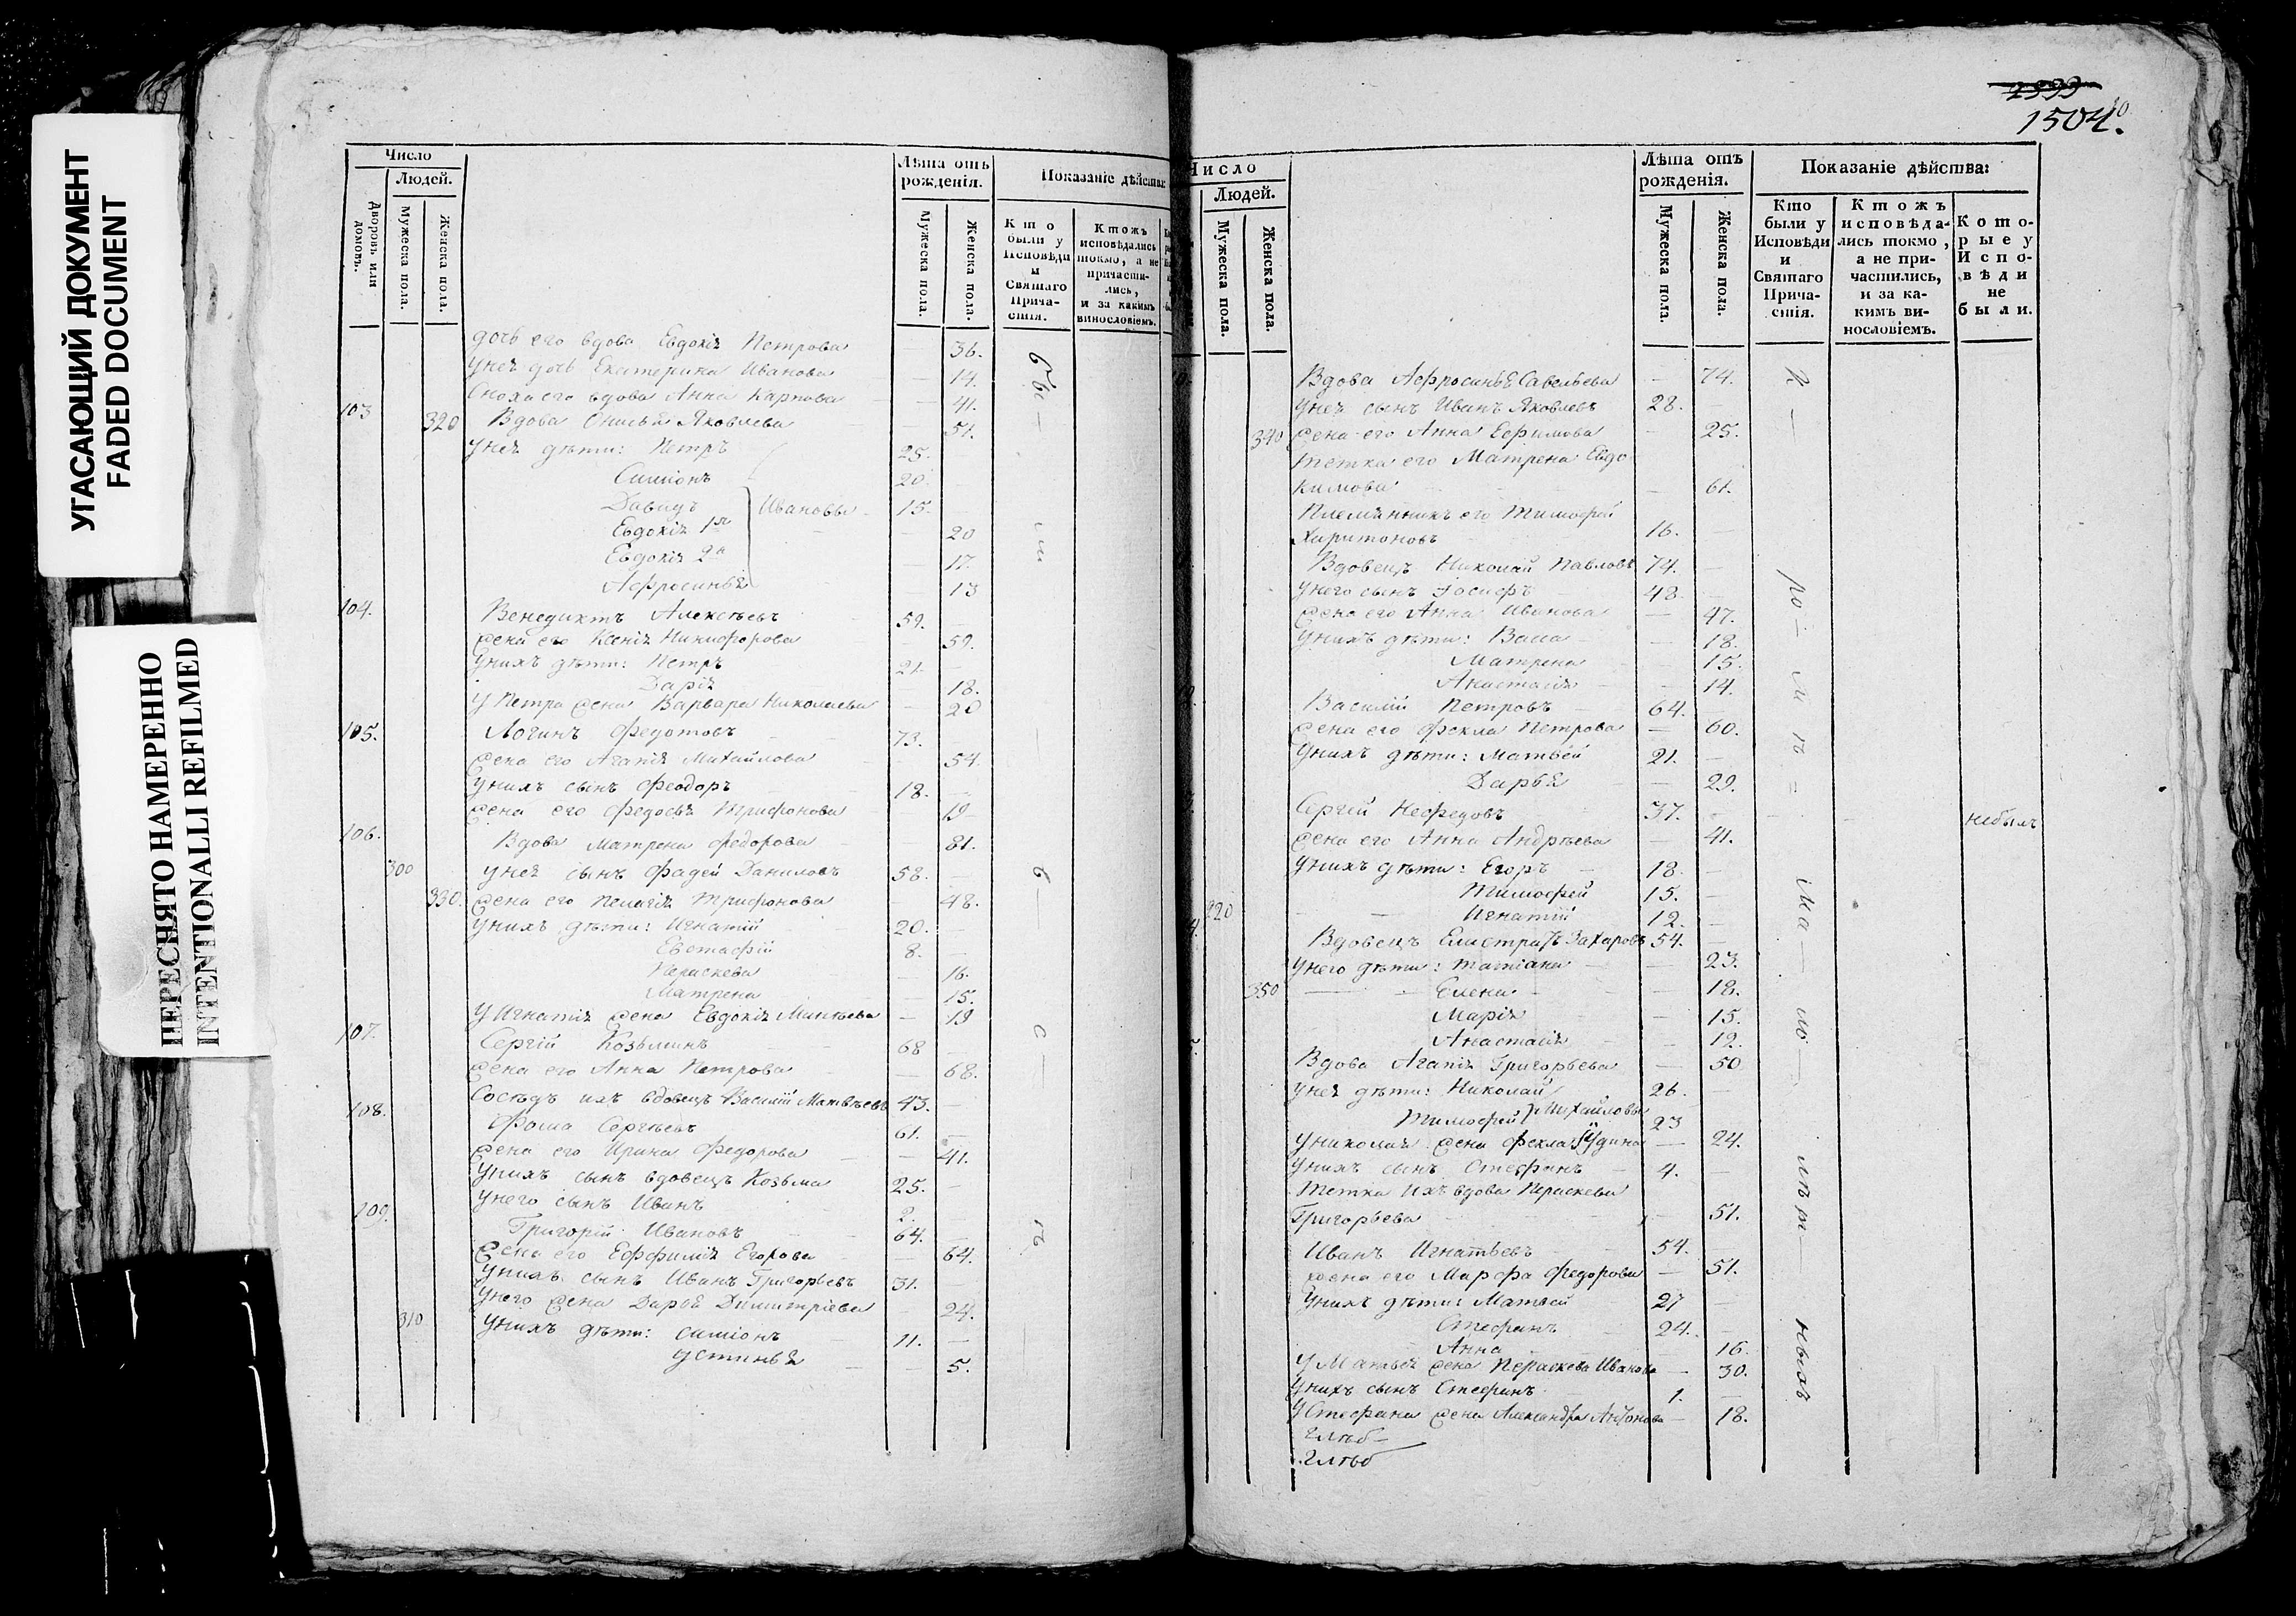 УГАСАЮЩИЙ ДОКУМЕНТ
FADED DOCUMENT
ПЕРЕСНЯТО НАМЕРЕННО
INTENTIONALLI REFILMED
Число
Людей.
Дворовъ или домовъ.
Мужеска пола.
Женска пола.
Лѣта отъ рожденія.
Мужеска пола.
Женска пола.
Показаніе дѣйства:
Кто были у Исповѣди и Святаго Прича-стія.
Ктожъ исповѣдались токмо, а не причасти-лись, и за какимъ винословіемъ.
дочь его вдова Евдокія Петрова 36.
у неѣ дочь Екатерина Иванова — 14.
Сноха его вдова Анна Карпова — 41.
103 320 Вдова Онисья Яковлева 51.
у неѣ дѣти: Петръ 25.
Симіонъ 20.
Давидъ Ивановы 15.
Евдокія 1я 20
Евдокія 2я 17.
Афросинья 13
104. Венедиктъ Алексѣевъ 59.
жена его Ксенія Никифорова 59.
у нихъ дѣти: Петръ 21.
Дарія 18.
у Петра жена Варвара Николаева — 20
105. Логинъ Федотовъ 73.
жена его Агапія Михайлова 54.
у нихъ сынъ Феодоръ 18.
жена его Федосья Трифонова 19
106. Вдова Матрена Федорова 81.
300 у неѣ сынъ Фадей Даниловъ 58.
330. жена его Пелагія Трифонова 48.
у нихъ дѣти: Игнатій 20.
Евстафій 8.
Пераскева 16.
Матрена 15.
у Игнатія жена Евдокія — 19
107. Сергій Козьминъ 68
жена его Анна Петрова — 68.
Сосѣдъ ихъ вдовецъ Василій Матвѣевъ 43. —
108. Фома Сергѣевъ 61.
жена его Ирина Федорова — 41.
у нихъ сынъ вдовецъ Козьма 25. —
у него сынъ Иванъ 2.
109. Григорій Ивановъ 64. —
жена его Еффимія Егорова 64.
у нихъ сынъ Иванъ Григорьевъ 31.
у него жена Дарья Димитріева 24.
310 у нихъ дѣти: Симіонъ 11. —
Устинья — 5.
1504.
Число
Людей.
Мужеска пола.
Женска пола.
Лѣта отъ рожденія.
Мужеска пола.
Женска пола.
Показаніе дѣйства:
Кто были у Исповѣди и Святаго Прича-стія.
Ктожъ исповѣда-лись токмо, а не при-частились, и за ка-кимъ ви-нословіемъ.
Кото-рые у Испо-вѣди не были.
Вдова Афросинья Савельева — 74.
у неѣ сынъ Иванъ Яковлевъ 28. —
340 жена его Анна Ефимова — 25.
тетка его Матрена Евдо
кимова — 61.
Племянникъ его Тимофей
Харитоновъ 16. —
Вдовецъ Николай Павловъ 74. —
у него сынъ Іосифъ 48. —
жена его Анна Иванова — 47.
у нихъ дѣти: Васса 18.
Матрена 15.
Анастасія 14.
Василій Петровъ 64.
жена его Фекла Петрова — 60.
у нихъ дѣти: Матвей 21.
Дарья — 29.
Сергей Нефедовъ 37. — небылъ
жена его Анна Андрѣева — 41.
у нихъ дѣти: Егоръ 18. —
Тимофей 15. —
Игнатій 12. —
Вдовецъ Елистратъ Захаровъ 54. —
у него дѣти: Татіана — 23.
350 Елена — 18.
Марія — 15.
Анастасія — 12.
Вдова Агапія Григорьева — 50
у неѣ дѣти: Николай 26.
Тимофей Михайловы 23
у Николая жена Фекла Юдина — 24.
у нихъ сынъ Стефанъ 4. —
Тетка ихъ вдова Пераскева
Григорьева 51.
Иванъ Игнатьевъ 54. —
жена его Марфа Федорова — 51.
у нихъ дѣти: Матвей 27 —
Стефанъ 24. —
Анна 16.
у Матвея жена Пераскева Иванова — 30.
у нихъ сынъ Стефанъ 1. —
у Стефана жена Александра Антонова — 18.
Глѣб
Глѣб